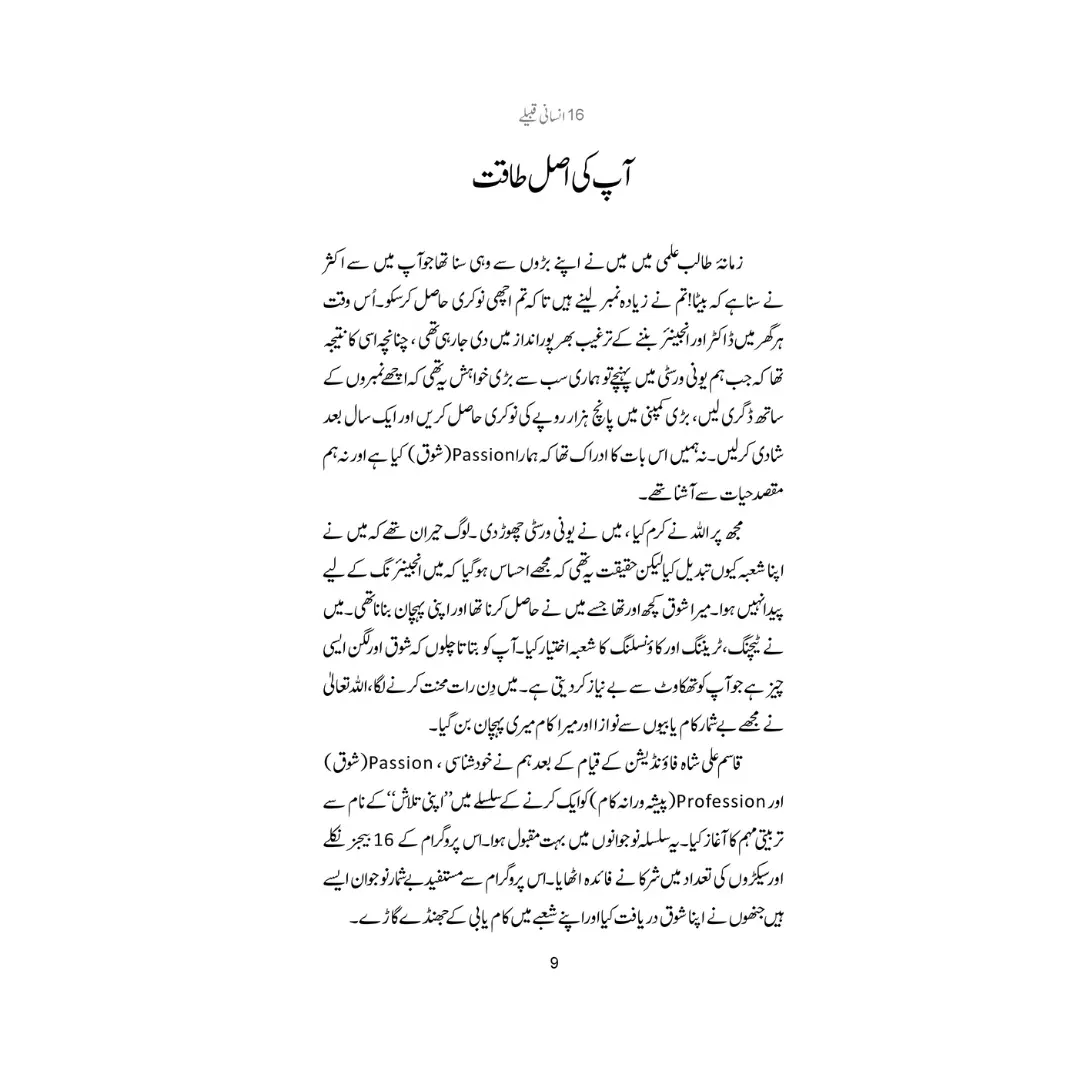 16 انسانی قبیلے
آپ کی اصل طاقت
زمانۂ طالب علمی میں میں نے اپنے بڑوں سے وہی سنا تھا جو آپ میں سے اکثر
نے سنا ہے کہ بیٹا! تم نے زیادہ نمبر لینے ہیں تا کہ تم اچھی نوکری حاصل کر سکو۔ اُس وقت
ہر گھر میں ڈاکٹر اور انجینئر بننے کے ترغیب بھرپور انداز میں دی جا رہی تھی، چنانچہ اسی کا نتیجہ
تھا کہ جب ہم یونی ورسٹی میں پہنچے تو ہماری سب سے بڑی خواہش یہ تھی کہ اچھے نمبروں کے
ساتھ ڈگری لیں، بڑی کمپنی میں پانچ ہزار روپے کی نوکری حاصل کریں اور ایک سال بعد
شادی کر لیں۔ نہ ہمیں اس بات کا ادراک تھا کہ ہمارا Passion (شوق) کیا ہے اور نہ ہم
مقصد حیات سے آشنا تھے۔
مجھ پر اللہ نے کرم کیا، میں نے یونی ورسٹی چھوڑ دی۔ لوگ حیران تھے کہ میں نے
اپنا شعبہ کیوں تبدیل کیا لیکن حقیقت یہ تھی کہ مجھے احساس ہو گیا کہ میں انجینئرنگ کے لیے
پیدا نہیں ہوا۔ میرا شوق کچھ اور تھا جسے میں نے حاصل کرنا تھا اور اپنی پہچان بنانا تھی۔ میں
نے ٹیچنگ، ٹریننگ اور کاؤنسلنگ کا شعبہ اختیار کیا۔ آپ کو بتاتا چلوں کہ شوق اور لگن ایسی
چیز ہے جو آپ کو تھکاوٹ سے بے نیاز کر دیتی ہے۔ میں دِن رات محنت کرنے لگا، اللہ تعالیٰ
نے مجھے بے شمار کام یابیوں سے نوازا اور میرا کام میری پہچان بن گیا۔
قاسم علی شاہ فاؤنڈیشن کے قیام کے بعد ہم نے خود شناسی، Passion (شوق)
اور Profession (پیشہ ورانہ کام) کو ایک کرنے کے سلسلے میں ”اپنی تلاش“ کے نام سے
تربیتی مہم کا آغاز کیا۔ یہ سلسلہ نوجوانوں میں بہت مقبول ہوا۔ اس پروگرام کے 16 بیجز نکلے
اور سیکڑوں کی تعداد میں شرکا نے فائدہ اٹھایا۔ اس پروگرام سے مستفید بے شمار نوجوان ایسے
ہیں جنھوں نے اپنا شوق دریافت کیا اور اپنے شعبے میں کام یابی کے جھنڈے گاڑے۔
9